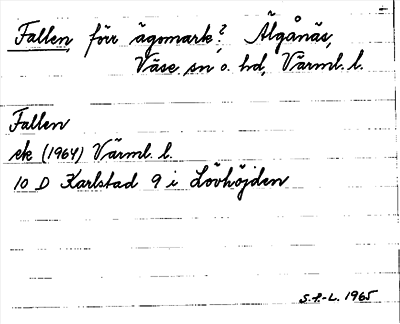 Fallen, förr ägomark?, Älgånäs,
Väse sn o. hd, Värml. l.
Fallen
ek (1964) Värml. l.
10 D Karlstad 9 i Lövhöjden
S.-P.-L. 1965